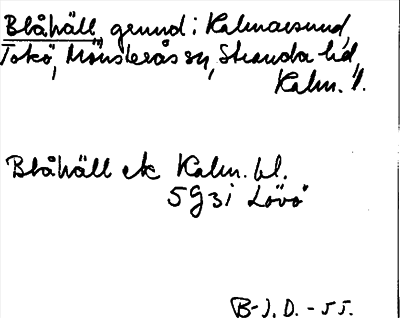 Blåhäll, grund i Kalmarsund,
Tokö, Mönsterås sn, Stranda hd,
Kalm. l.
Blåhäll ek Kalm. bl.
5G3i Lövö
B-J. D. - 55.